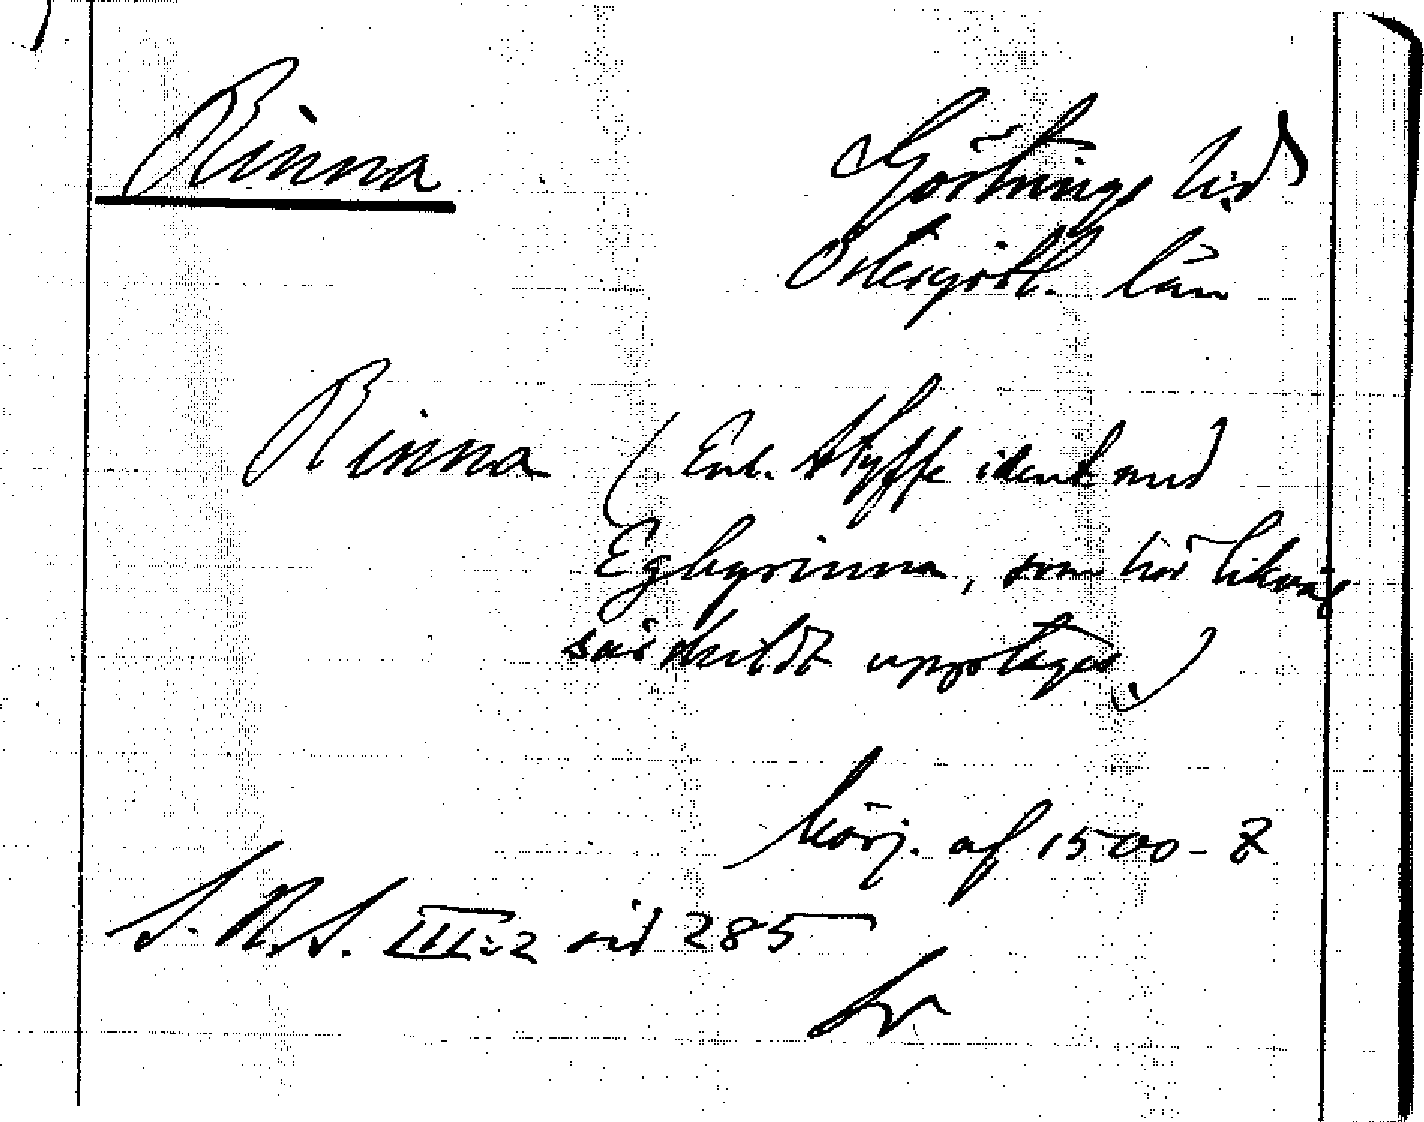 Rinna
Göstrings hd
Östergötl. län
Rinna (Enl. Styffe ident med
Egbyrinna, som här likväl
särskildt upptages.)
börj. af 1500-t
S.R.S. III:2 sid 285